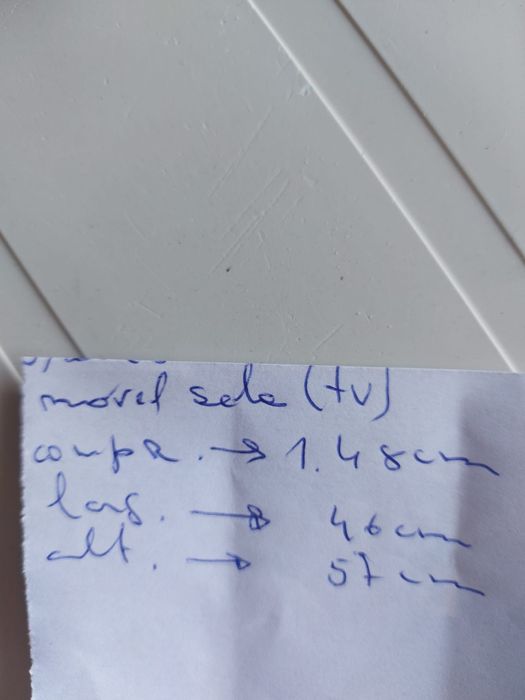 móvel sala (tv)
compR. → 1.48cm
larg. → 46cm
alt. → 57cm